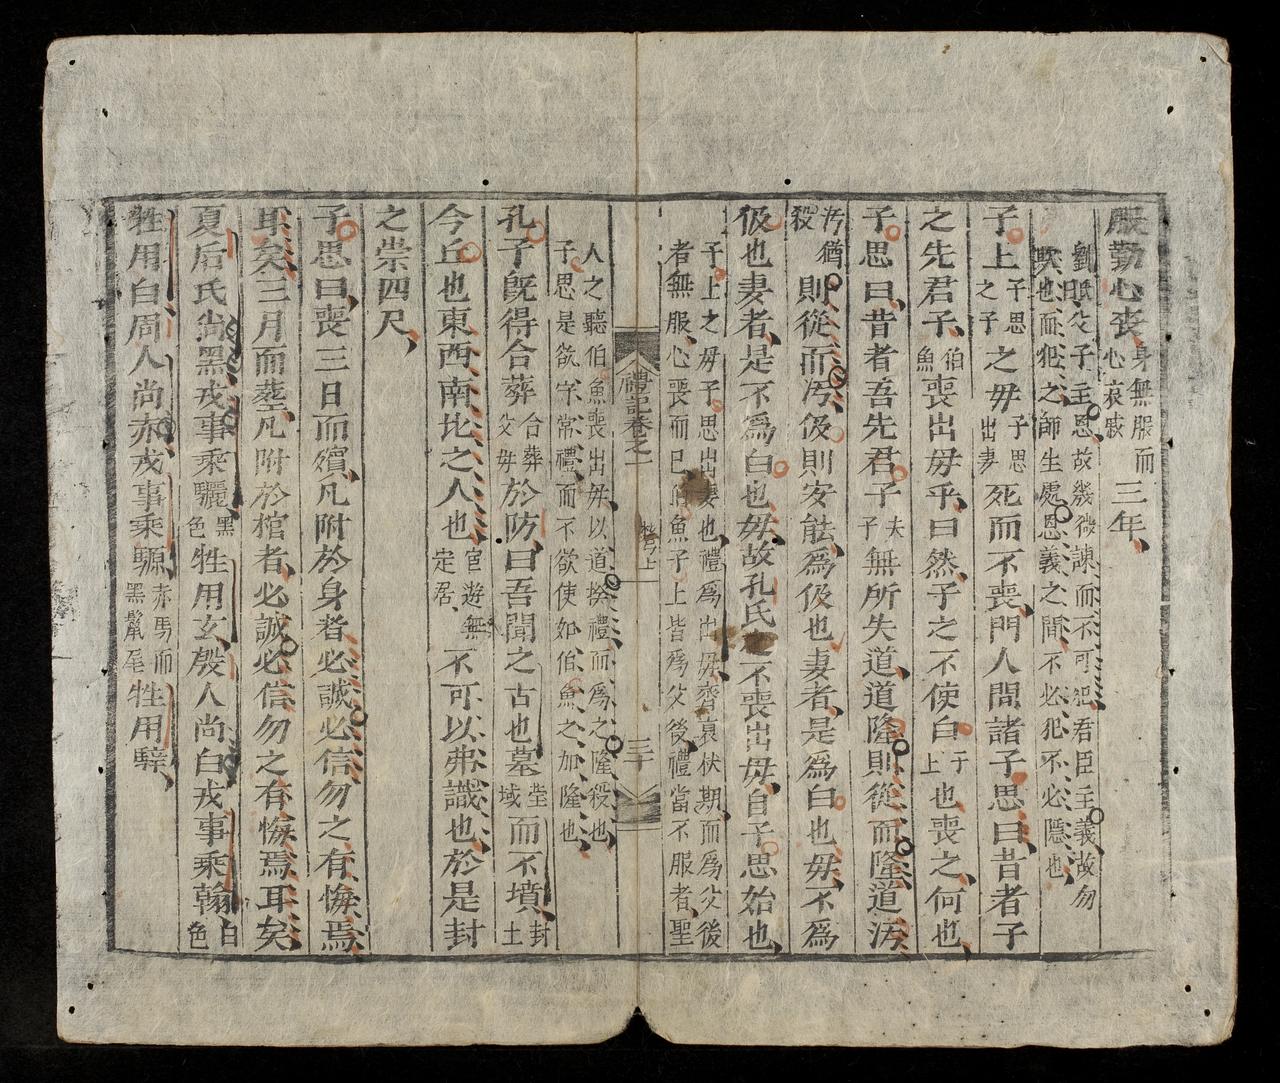 服勤心喪身無服而心哀戚三年
劉氏曰父子主恩故幾微諫而不可犯君臣主義故勿
欺也而犯之師生處恩義之間不必犯不必隱也
子上子思之子之母子思出妻死而不喪門人問諸子思曰昔者子
之先君子伯魚喪出母乎曰然子之不使白子上也喪之何也
子思曰昔者吾先君子夫子無所失道道隆則從而隆道汚
汚猶殺則從而汚伋則安能爲伋也妻者是爲白也母不爲
伋也妻者是不爲白也母故孔氏之不喪出母自子思始也
子上之母子思出妻也禮爲出母齊衰杖期而爲父後
者無服心喪而已伯魚子上皆爲父後禮當不服者聖
禮記卷之一 檀弓上 三十
人之聽伯魚喪出母以道揆禮而爲之隆殺也
子思是欲守常禮而不欲使如伯魚之加隆也
孔子旣得合葬合葬父母於防曰吾聞之古也墓塋域而不墳封土
今丘也東西南北之人也宦遊無定居不可以弗識也於是封
之崇四尺
子思曰喪三日而殯凡附於身者必誠必信勿之有悔焉
耳矣三月而葬凡附於棺者必誠必信勿之有悔焉耳矣
夏后氏尚黑戎事乘驪黑色牲用玄殷人尚白戎事乘翰白色
牲用白周人尚赤戎事乘騵赤馬而黑鬣尾牲用騂